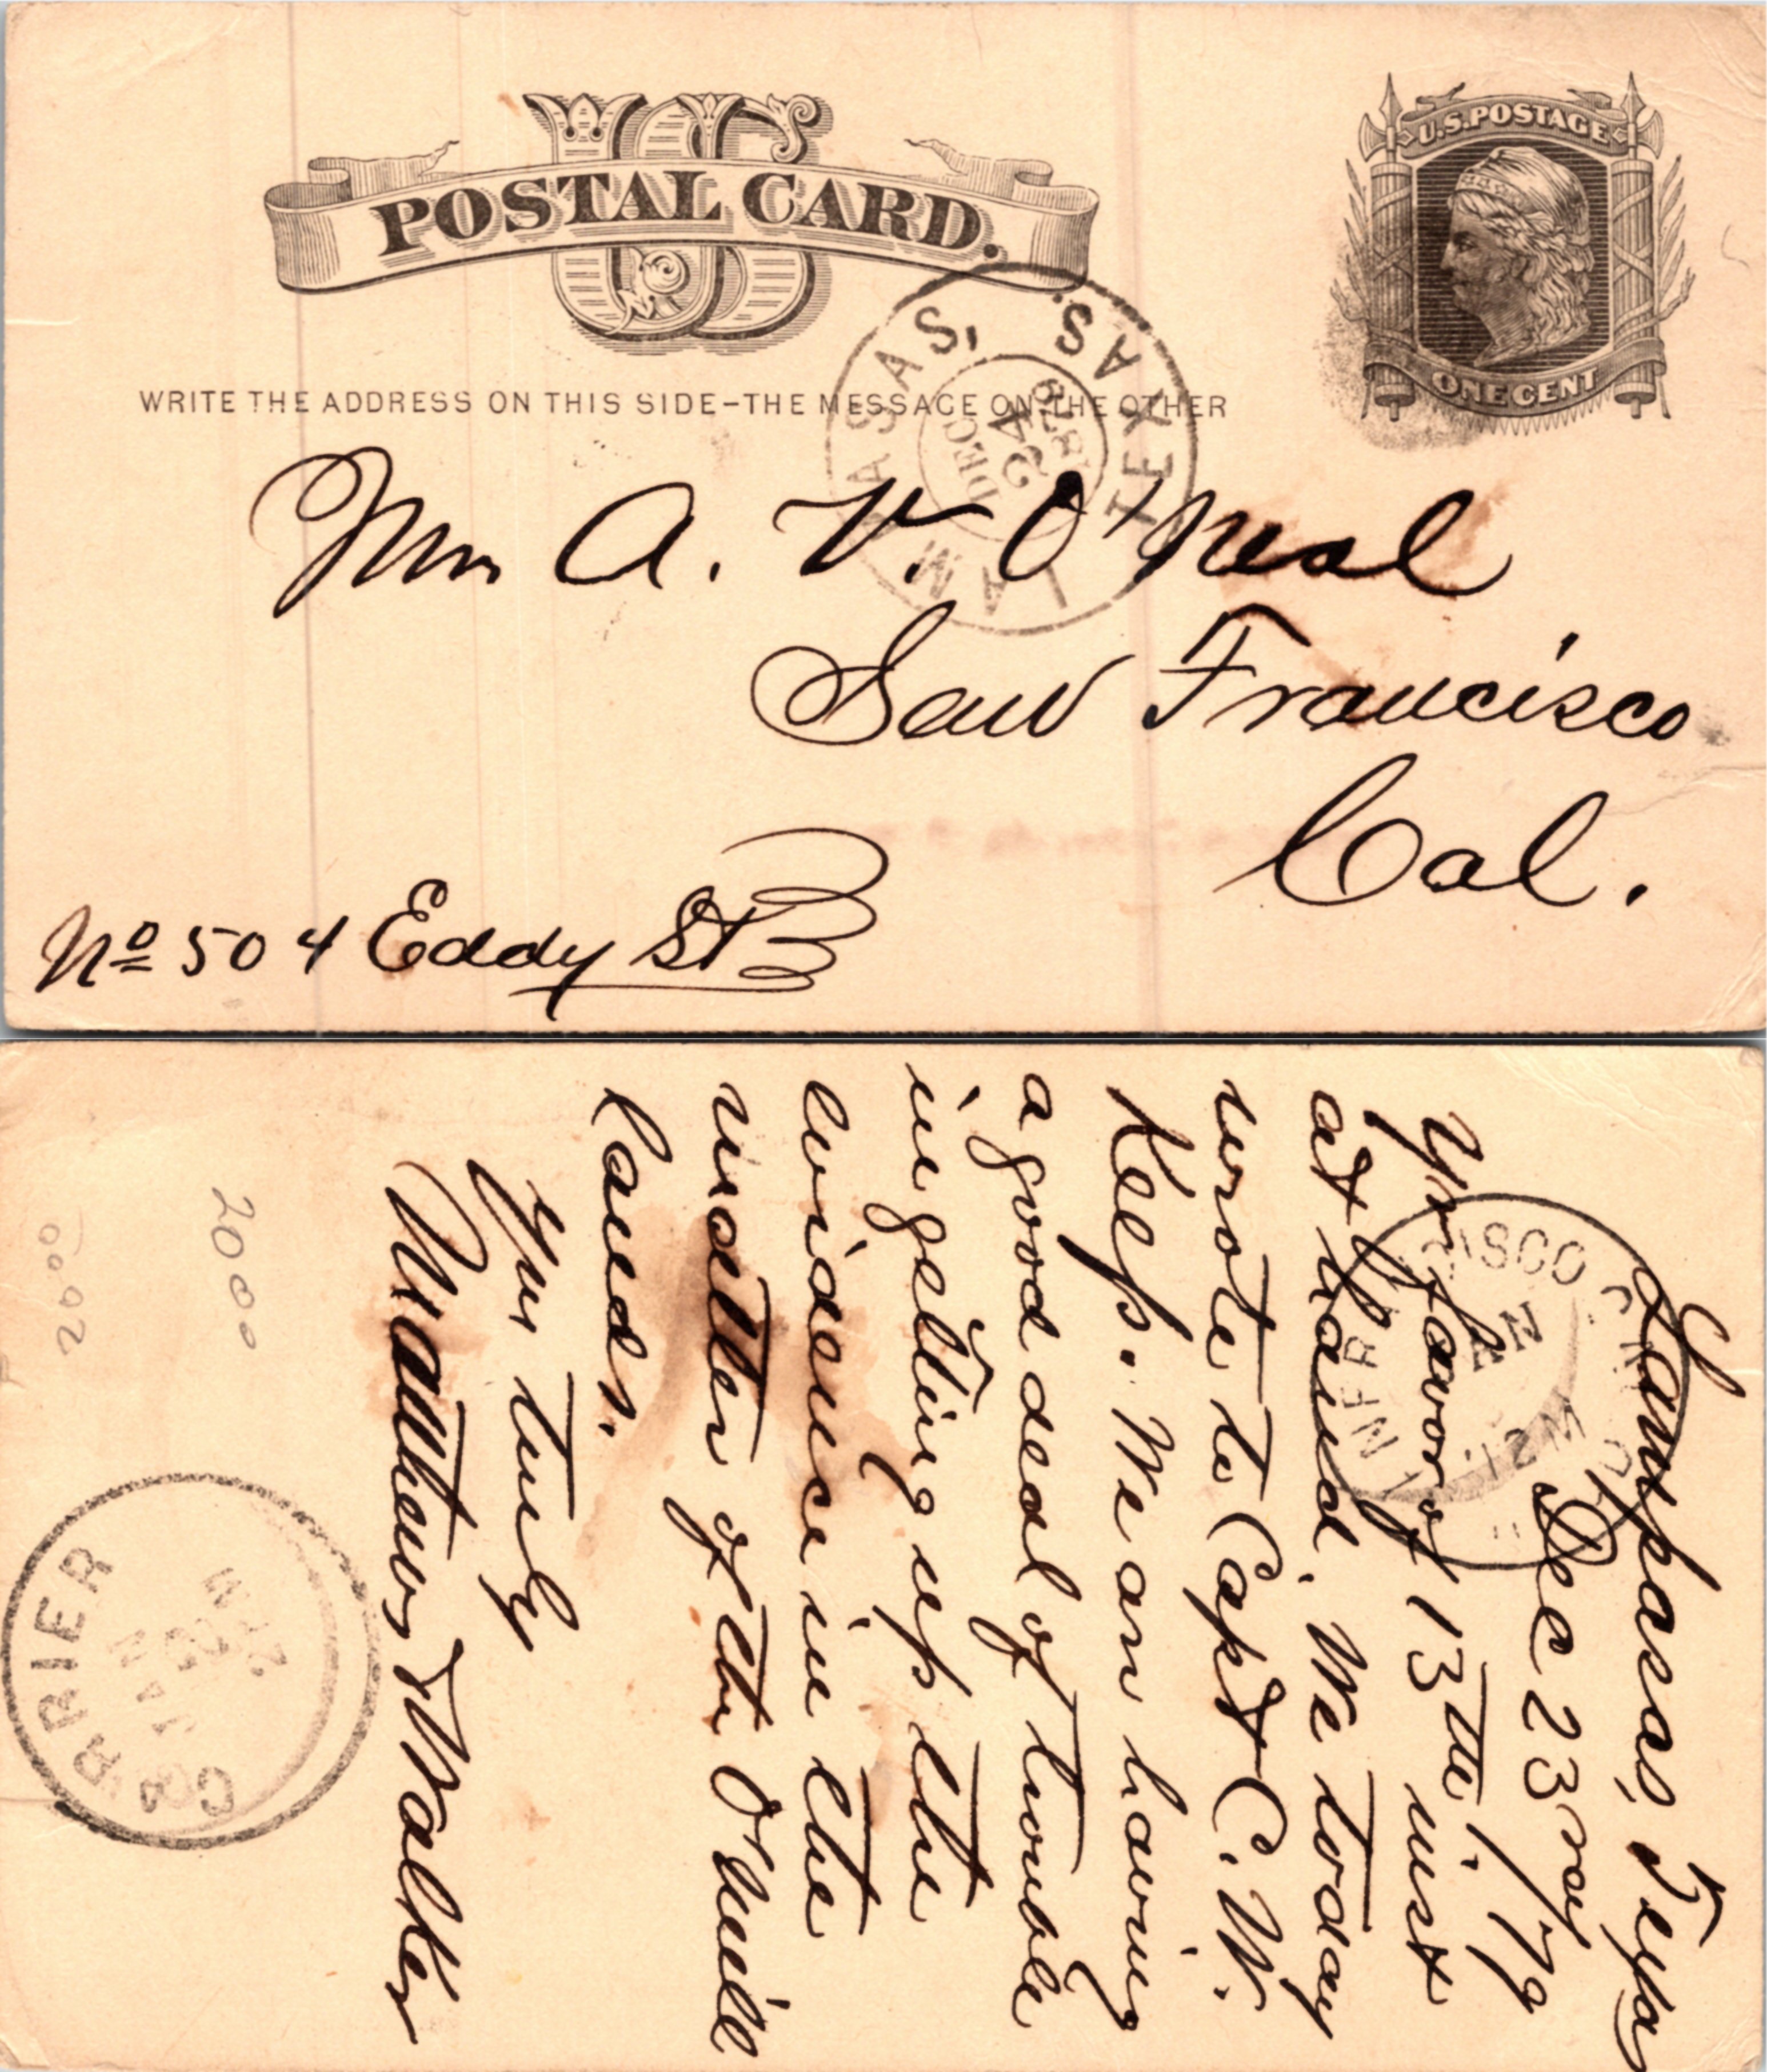 US
POSTAL CARD.
U.S. POSTAGE
ONE CENT
WRITE THE ADDRESS ON THIS SIDE-THE MESSAGE ON THE OTHER
LAMPASAS,
TEXAS.
DEC
24
1879
Mr A. V. O'Neal
San Francisco
Cal.
No 504 Eddy St
Lampasas, Texas
Dec 23rd/79
Yr favor of 13th inst
at hand. We today
wrote to Capt C. W.
Kelp. We are having
a good deal of trouble
in getting up the
evidence in the
matter of the O'Neill
Lands.
Yrs truly
Matthews & Walker
CARRIER
JAN
2000
20.00